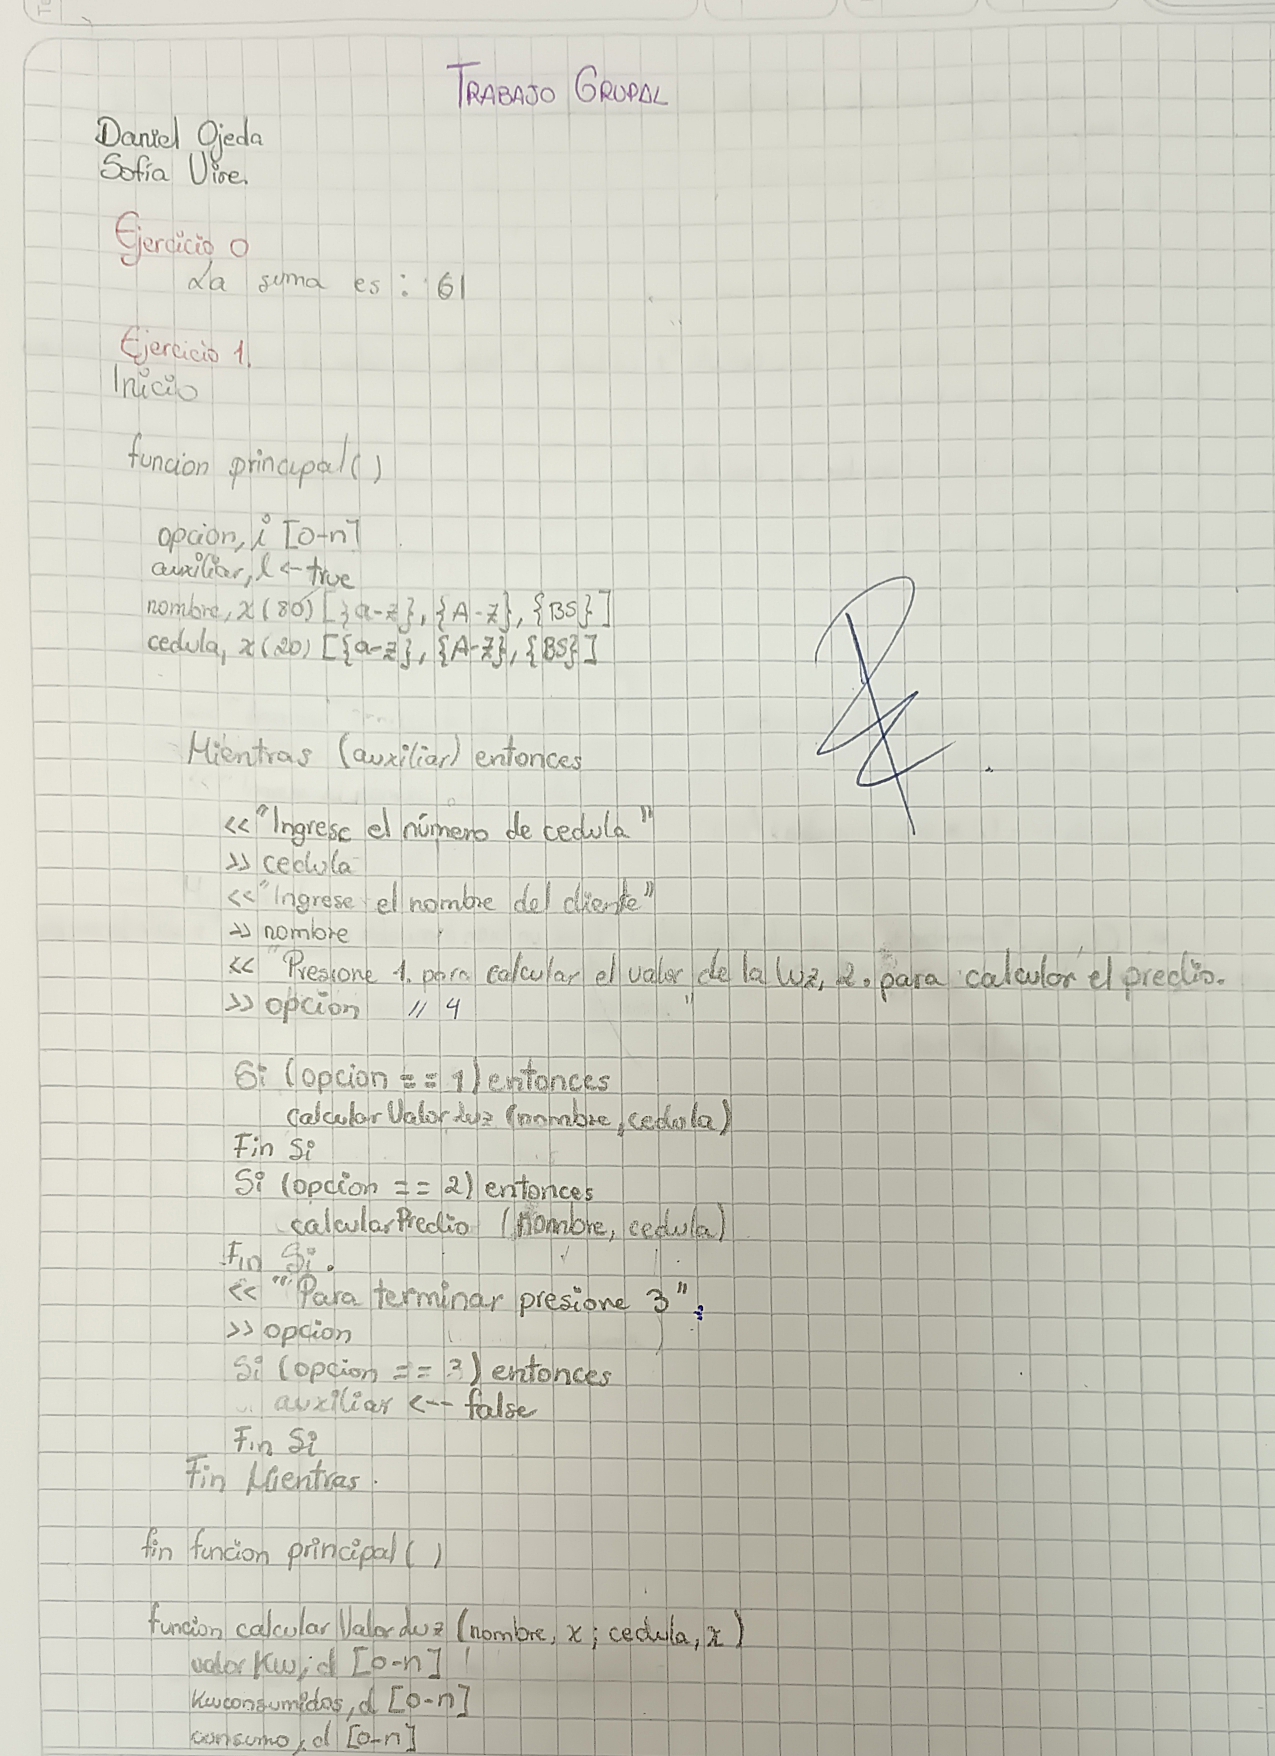 TRABAJO GRUPAL
Daniel Ojeda
Sofía Vire.
Ejercicio 0
La suma es: 61
Ejercicio 1.
Inicio
funcion principal()
opcion, i [0-n]
auxiliar, l <- true
nombre, x(80) [{a-z}, {A-z}, {BS}]
cedula, x(20) [{a-z}, {A-z}, {BS}]
Mientras (auxiliar) entonces
<< "Ingrese el número de cedula"
>> cedula
<< "Ingrese el nombre del cliente"
>> nombre
<< "Presione 1. para calcular el valor de la luz, 2. para calcular el predio.
>> opcion // 4 "
Si (opcion == 1) entonces
calcularValorLuz (nombre, cedula)
Fin Si
Si (opcion == 2) entonces
calcularPredio (nombre, cedula)
Fin Si.
<< "Para terminar presione 3";
>> opcion
Si (opcion == 3) entonces
auxiliar <-- false
Fin Si
Fin Mientras.
fin funcion principal()
funcion calcularValorLuz (nombre, x; cedula, x)
valorKw, d [0-n]
Kwconsumidos, d [0-n]
consumo, d [0-n]